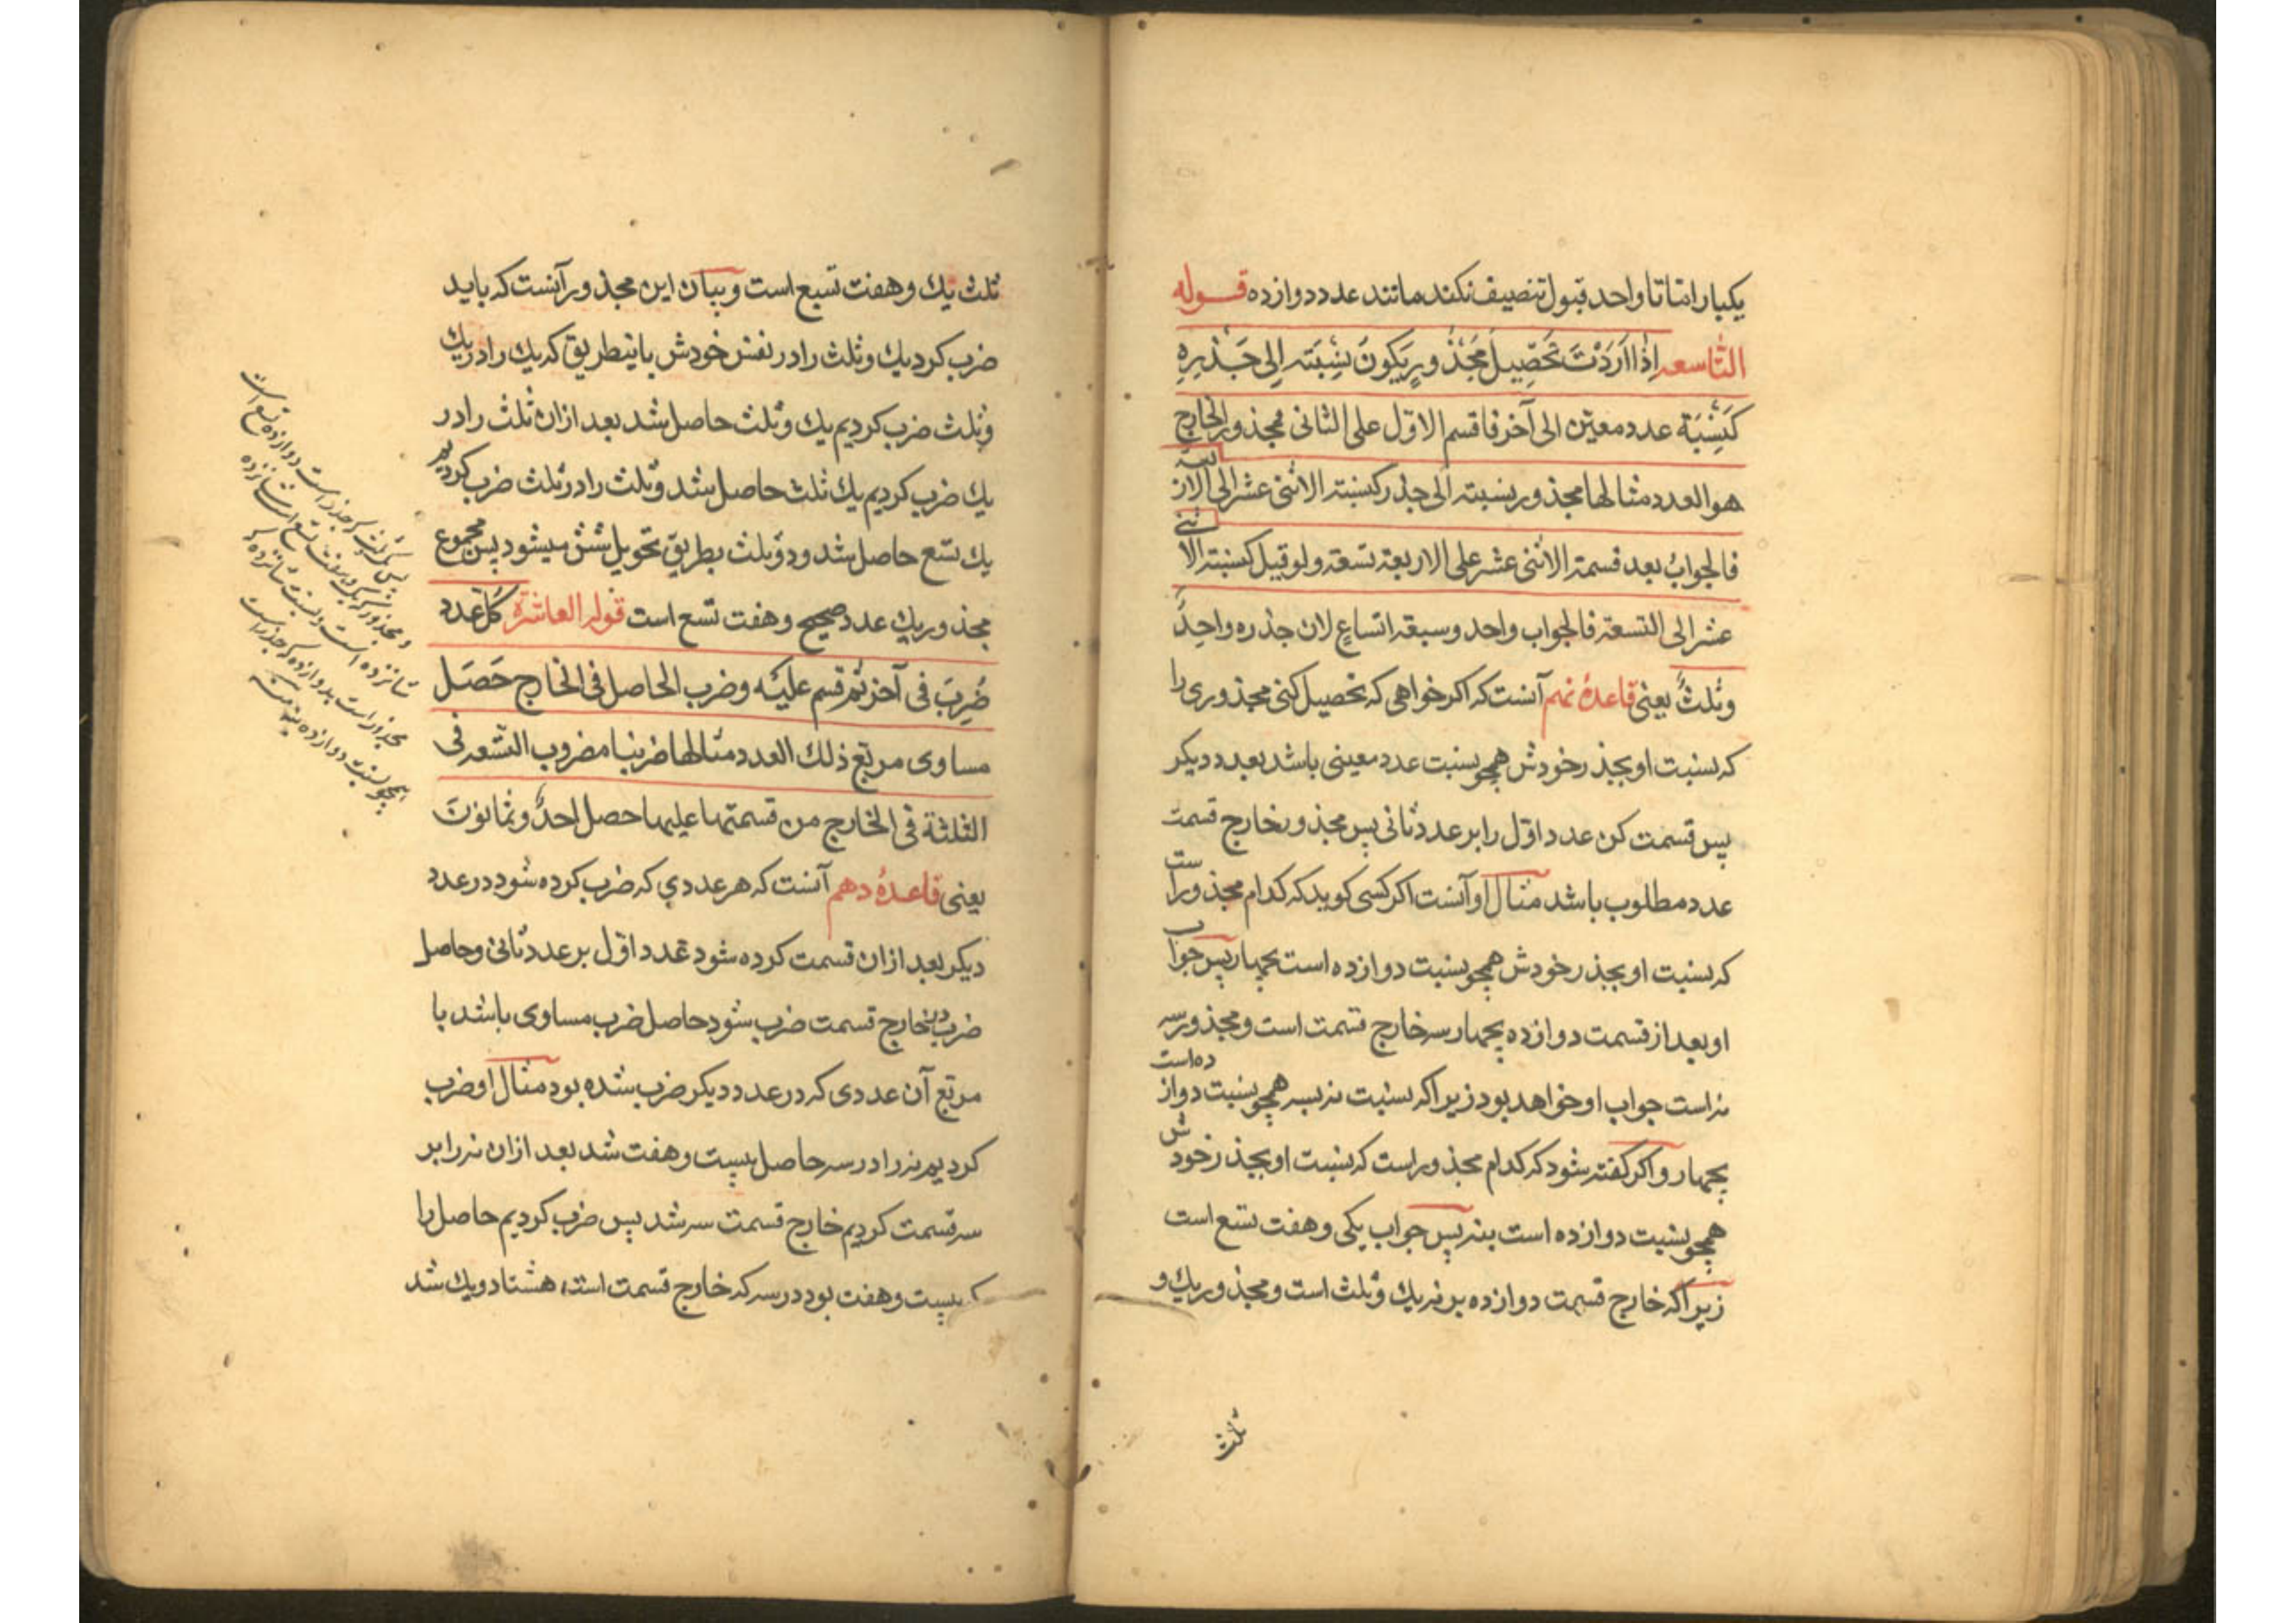 یکبار امّا تا واحد قبول تنصیف نکند مانند عدد دوازده قوله
التّاسعه اِذا اَرَدْتَ تَحْصِیلَ مَجْذُورٍ یَکونَ نِسْبَته اِلی جَذْرِهِ
کَنِسْبَة عدد معیّن الی آخر فاقسم الاوّل علی الثانی مجذور الخارج
هو العدد مثالها مجذور نسبته الی جذره کنسبة الاثنی عشر الی الاربعة
فالجوابُ بعد قسمة الاثنی عشر علی الاربعة تسعة ولو قیل کنسبة الاثنی
عشر الی التسعة فالجواب واحد وسبعة اتساعٍ لان جذره واحدٌ
وثلثٌ یعنی قاعدهٔ نهم آنست که اکر خواهی که تحصیل کنی مجذوری را
که نسبت او بجذر خودش همچو نسبت عدد معینی باشد بعدد دیکر
پس قسمت کن عدد اوّل را بر عدد ثانی پس مجذور خارج قسمت
عدد مطلوب باشد مثال او آنست اکر کسی کوید که کدام مجذور است
که نسبت او بجذر خودش همچو نسبت دوازده است بچهار پس جواب
او بعد از قسمت دوازده بچهار سه خارج قسمت است و مجذور سه
نه است جواب او خواهد بود زیراکه نسبت نه بسه همچو نسبت دوازده است
بچهار و اکر کفته شود که کدام مجذور است که نسبت او بجذر خودش
همچو نسبت دوازده است بنه پس جواب یکی و هفت تسع است
زیراکه خارج قسمت دوازده بر نه یك و ثلث است و مجذور یك و
ثلث
ثلث یك و هفت تسع است و بیان این مجذور آنست که باید
ضرب کرد یك و ثلث را در نفس خودش باینطریق که یك را در یك
و ثلث ضرب کردیم یك و ثلث حاصل شد بعد ازان ثلث را در
یك ضرب کردیم یك ثلث حاصل شد و ثلث را در ثلث ضرب کردیم
یك تسع حاصل شد و دو ثلث بطریق تحویل شش میشود پس مجموع
مجذور یك عدد صحیح و هفت تسع است قوله العاشرة کل عدد
ضُرِبَ فی آخر ثم قسم علیه وضرب الحاصل فی الخارج حَصَل
مساوی مربّع ذلك العدد مثالها ضربنا مضروب التسعه فی
الثلثة فی الخارج من قسمتها علیها حصل احدٌ وثمانونَ
یعنی قاعدهٔ دهم آنست که هر عددی که ضرب کرده شود در عدد
دیکر بعد ازان قسمت کرده شود عدد اوّل بر عدد ثانی و حاصل
ضرب در خارج قسمت ضرب شود حاصل ضرب مساوی باشد با
مربّع آن عددی که در عدد دیکر ضرب شده بود مثال او ضرب
کردیم نه را در سه حاصل بیست و هفت شد بعد ازان نه را بر
سه قسمت کردیم خارج قسمت سه شد پس ضرب کردیم حاصل را
که بیست و هفت بود در سه که خارج قسمت است هشتاد و یك شد